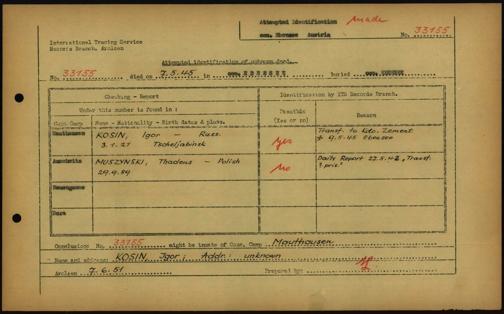 Attempted Identification made
com. Ebensee Austria No. 33155
International Tracing Service
Records Branch, Arolsen
Attempted identification of unknown dead.
No. 33155 died on 7.5.45 in com. EBENSEE buried com. EBENSEE
Checking - Report Identification by ITS Records Branch.
Under this number is found in : Possible (Yes or no) Reason
Conc. Camp Name - Nationality - Birth dates & place.
Mauthausen KOSIN, Igor - Russ. 3.1.21 Tscheljabinsk yes Transf. to Kdo. Zement + 9.5.45 Ebensee
Auschwitz MUSZYNSKI, Thadeus - Polish 29.9.89 no Daily Report 27.5.42, Transf. ? priz.
Neuengamme
Dora
Conclusion: No. 33155 might be inmate of Conc. Camp Mauthausen
Name and address: KOSIN, Igor; Addr: unknown
Arolsen 7.6.51 Prepared by: